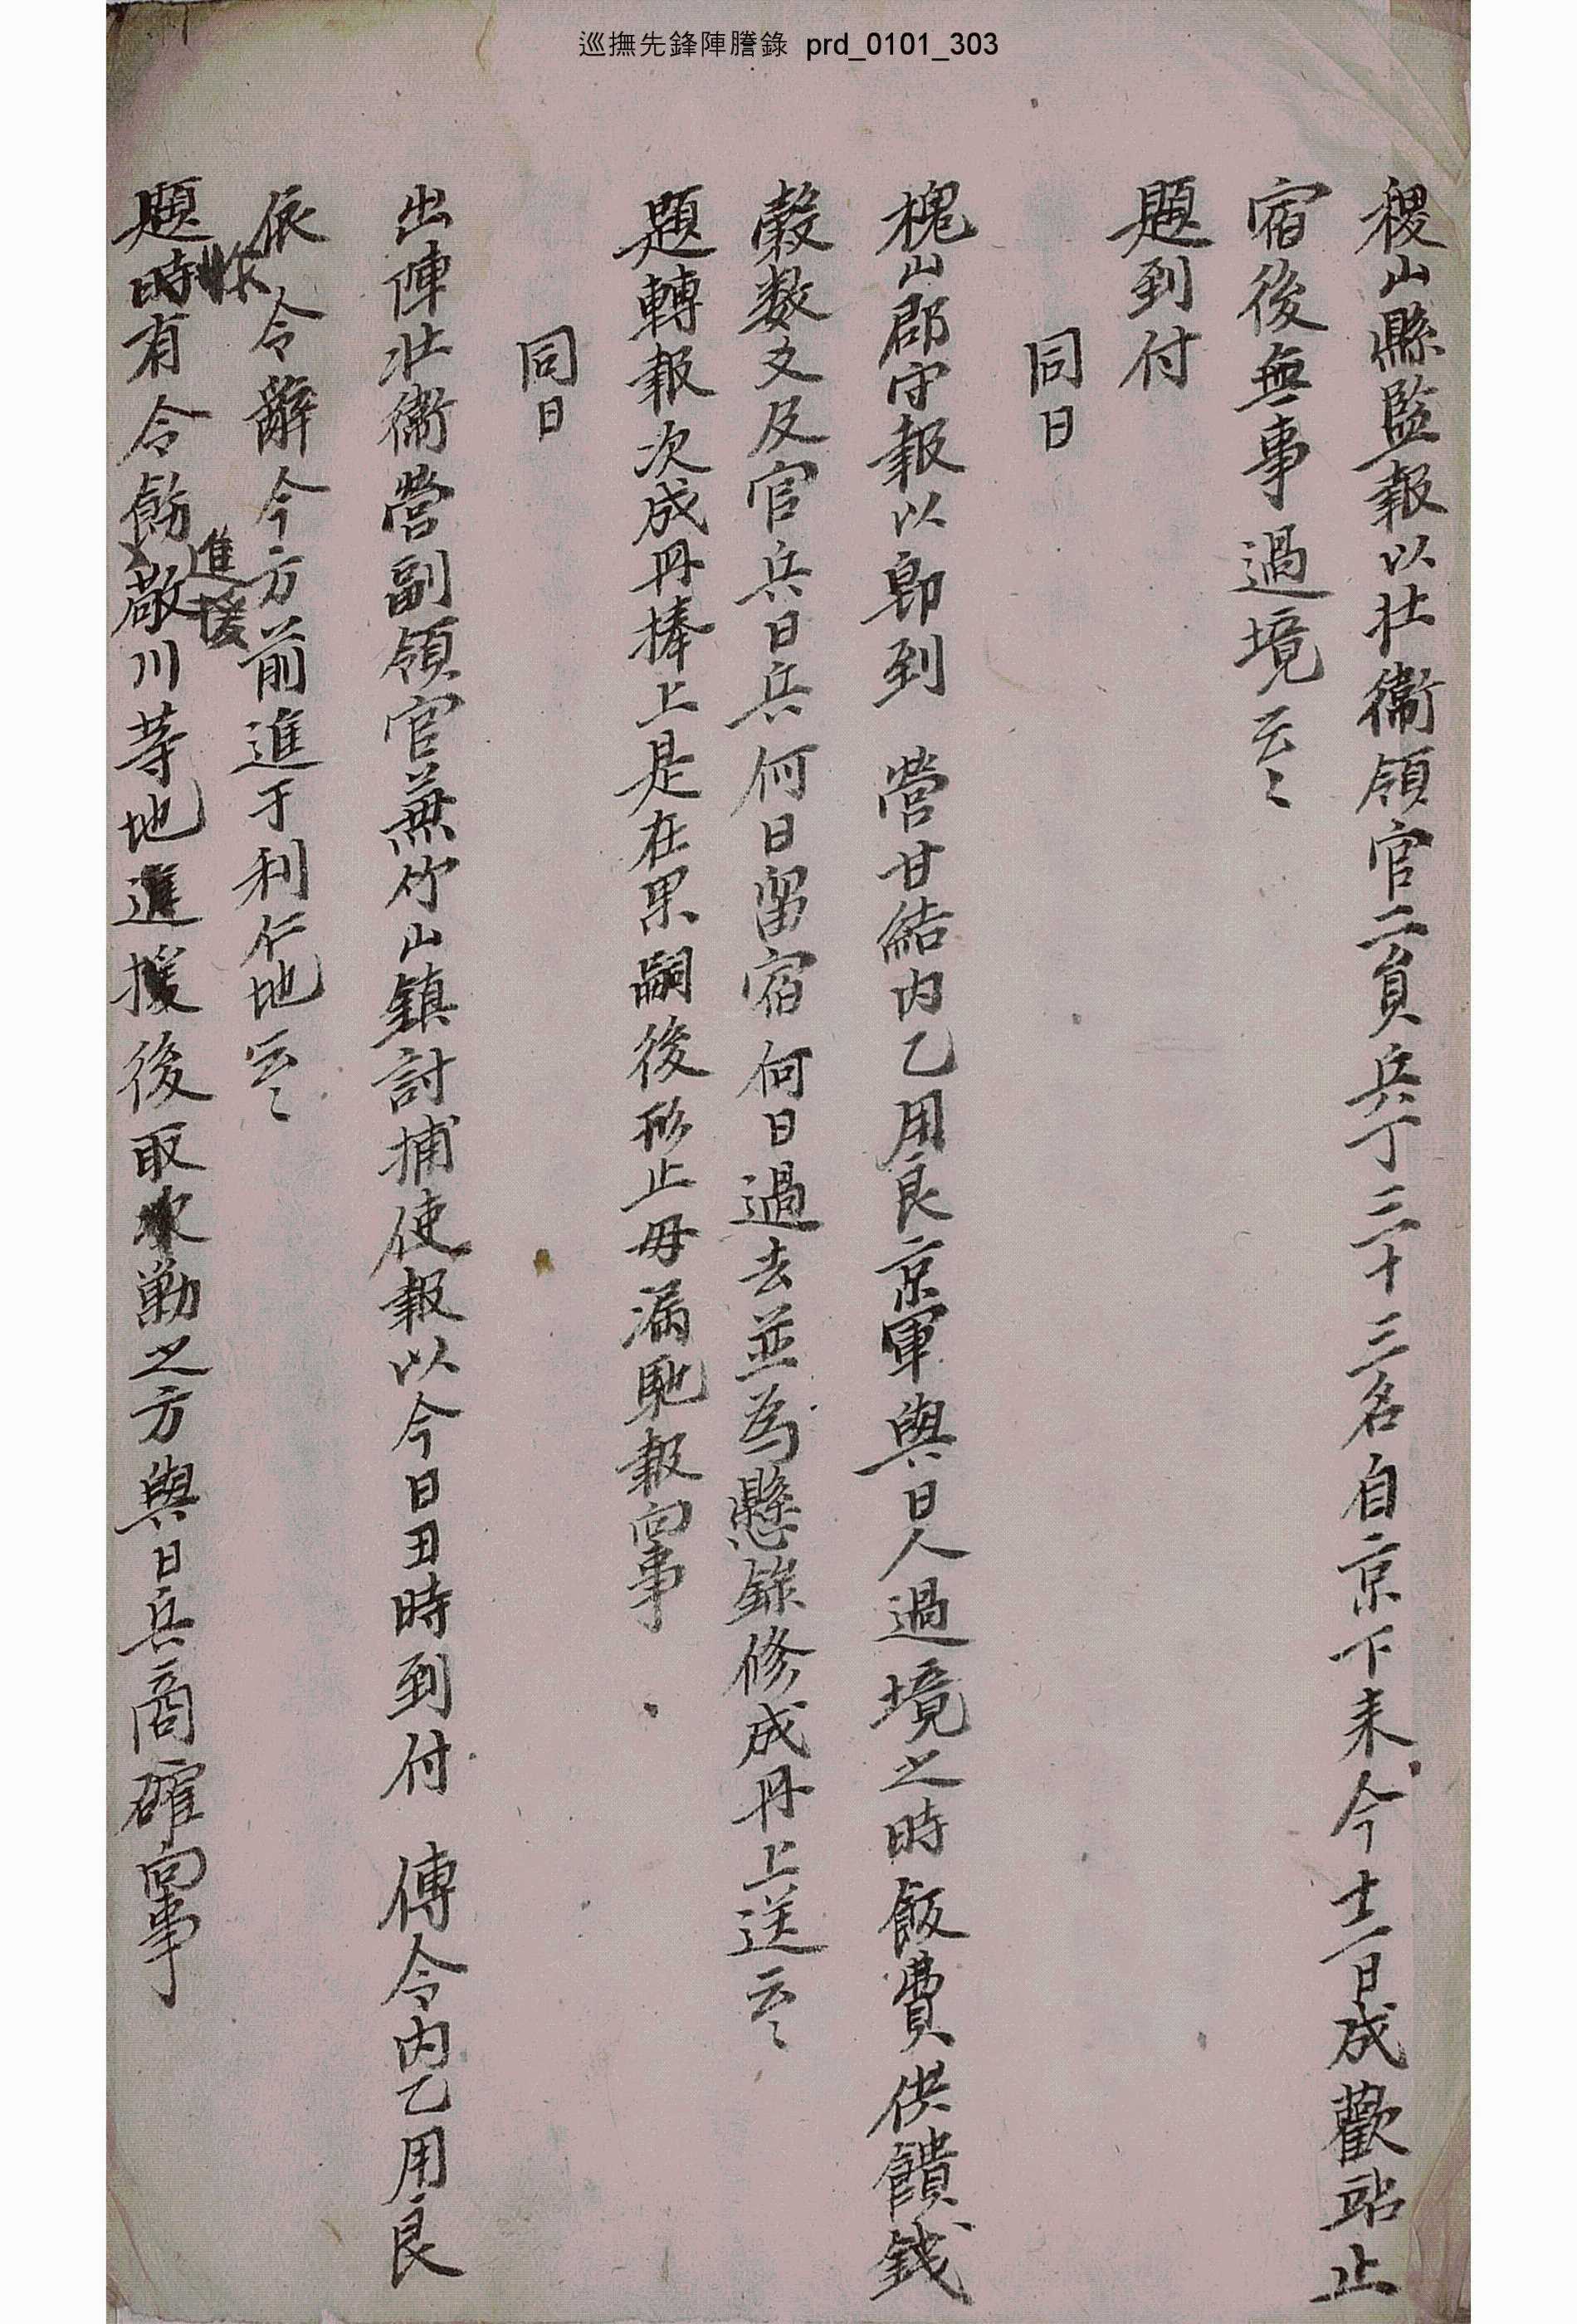 巡撫先鋒陣謄錄 prd_0101_303
稷山縣監報以壯衛領官二員兵丁三十三名自京下来今十二日成歡站止
宿後無事過境云〻
題到付
同日
槐山郡守報以卽到 營甘結內乙用良京軍與日人過境之時飯費供饋錢
穀数爻及官兵日兵何日留宿何日過去並為懸錄修成冊上送云〻
題轉報次成冊捧上是在果嗣後形止毋漏馳報向事
同日
出陣壯衛營副領官兼竹山鎮討捕使報以今日丑時到付 傳令內乙用良
依 令辭今方前進于利仁地云〻
題時有令飭敬川等地進援後取次勦之方與日兵商確向事
進援